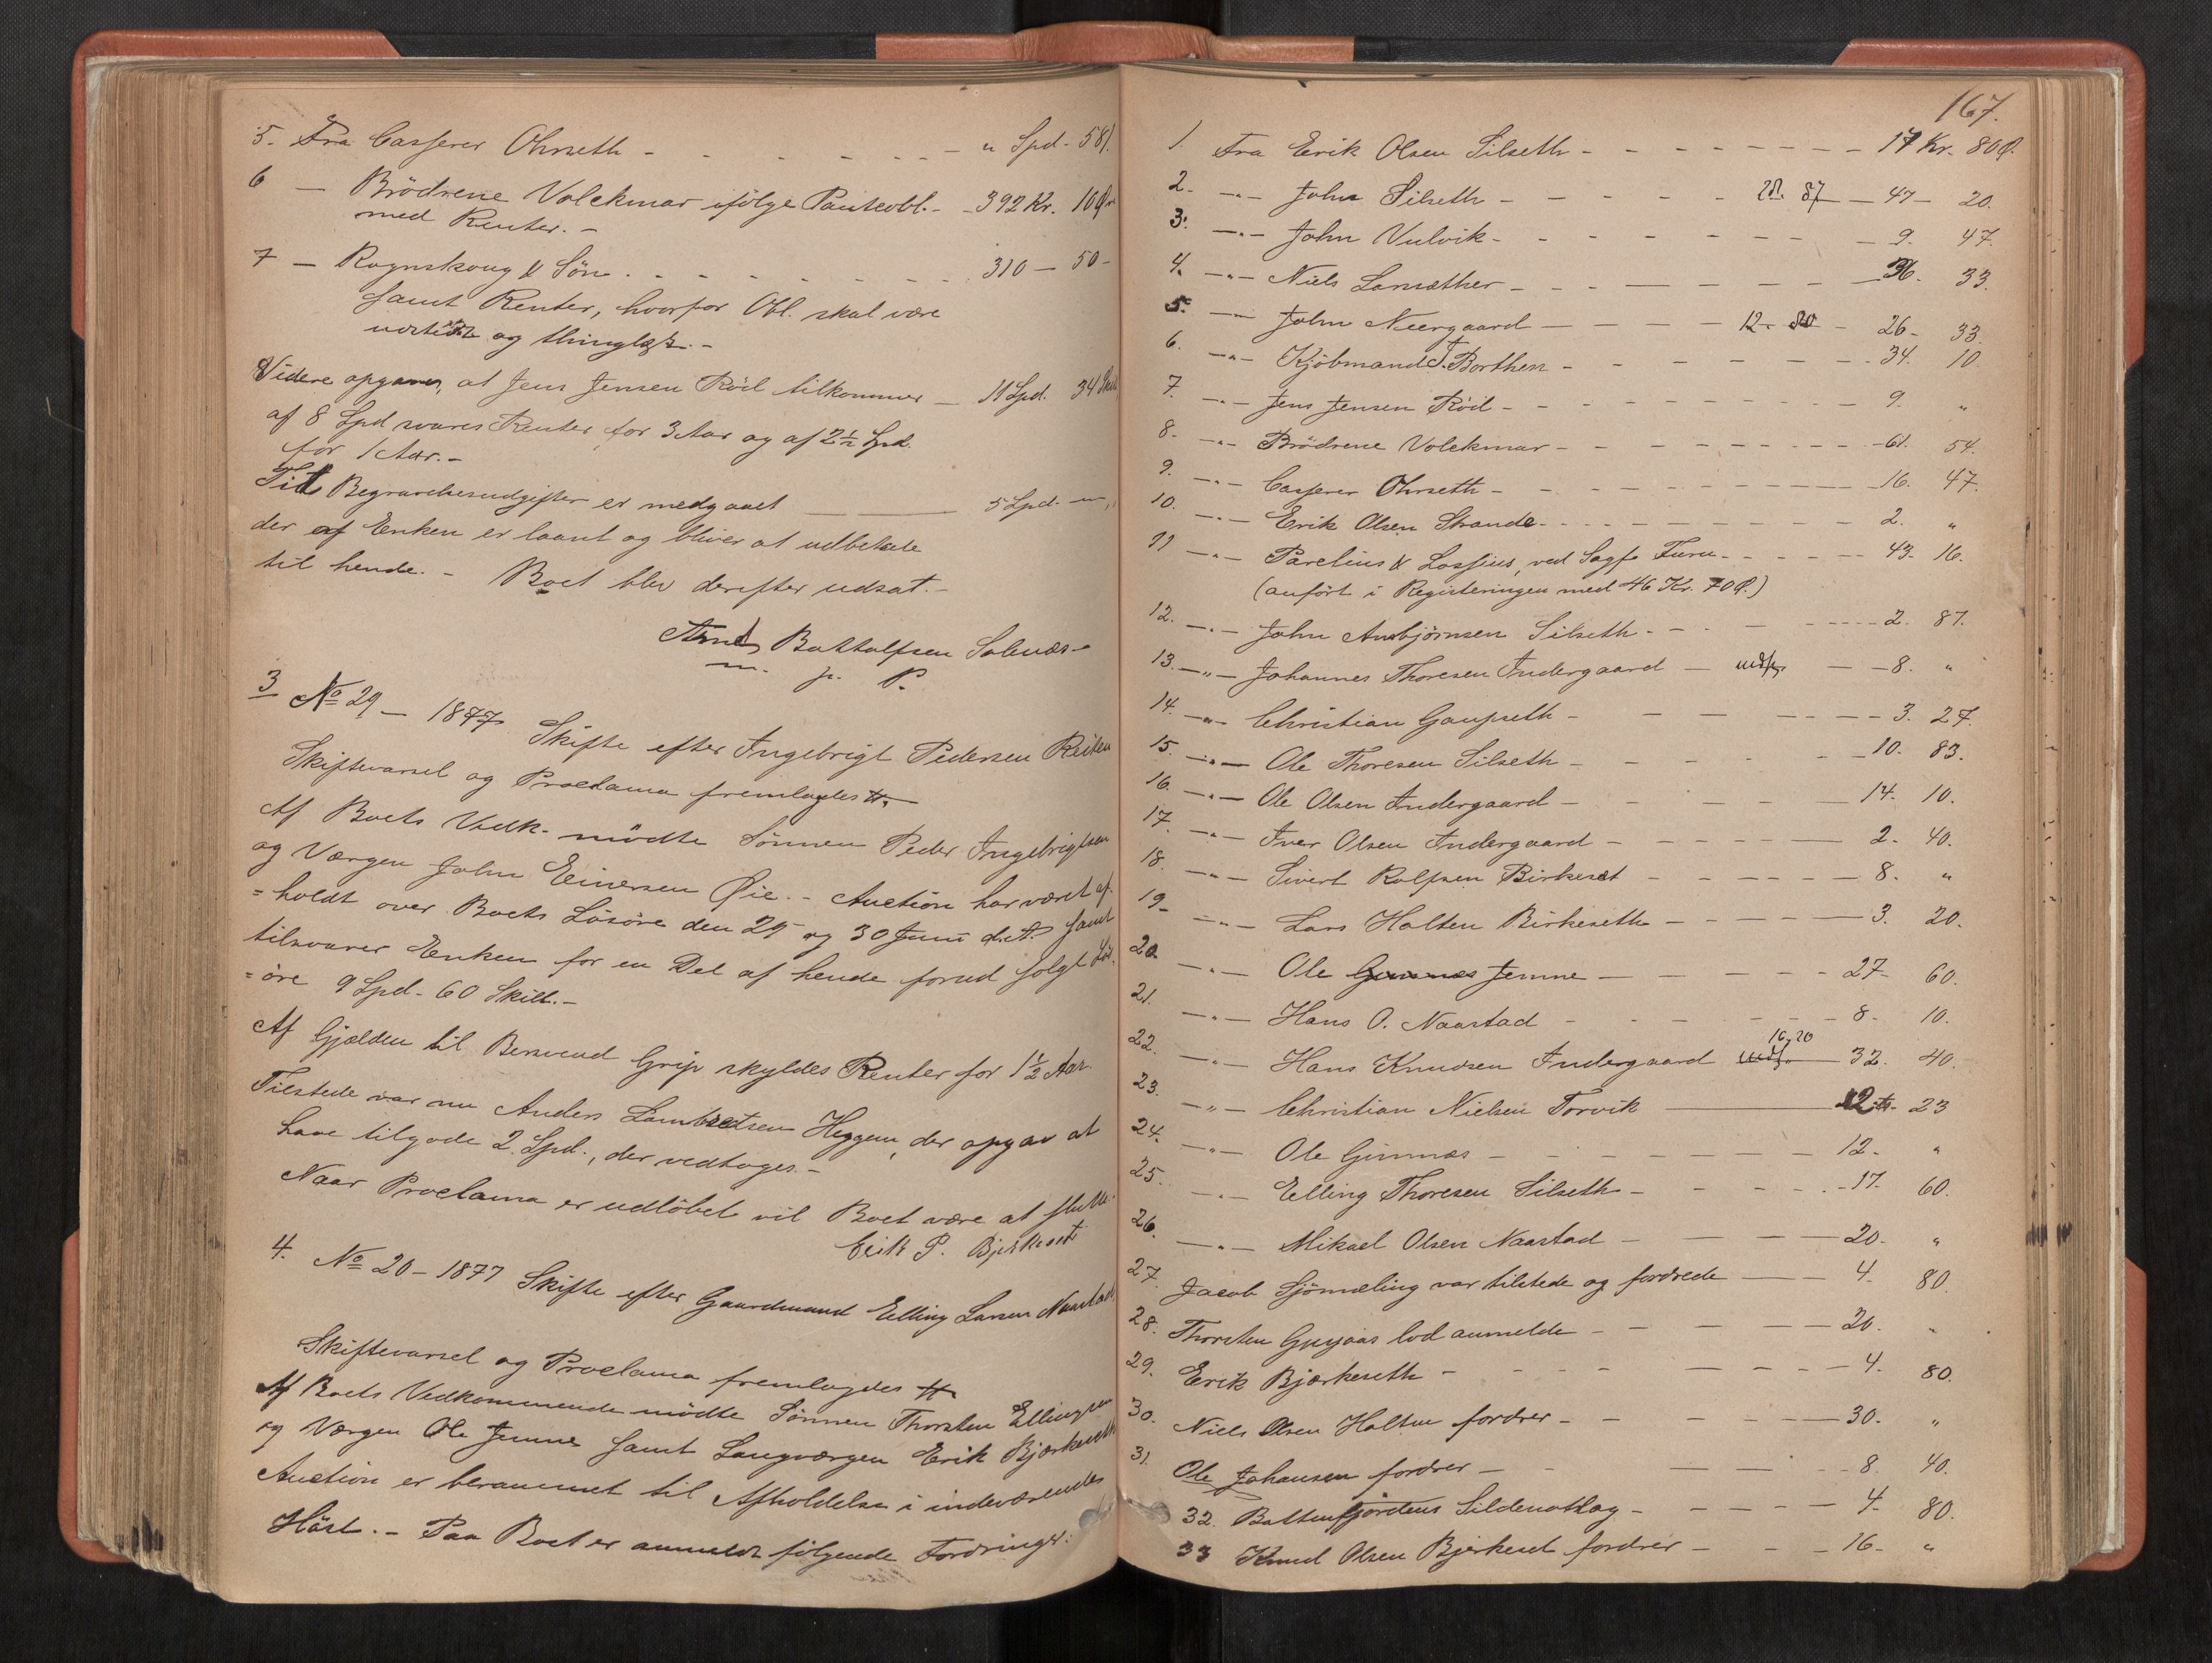 5. Fra Casserer Ohrseth - - - - - - - " Spd - 58/.
6 — Brödrene Volckmar ifölge Panteobl. - 392 Kr. 10 Ør
med Renter. -
7 — Rognskoug & Sön . - - - - - - 310 — 50 -
samt Renter, hvorfor Obl. skal være
udstedt og thinglæst. -
Videre opgaves, at Jens Jensen Röd tilkommer — 11 Spd. 34 Skill
af 8 Spd svares Renter for 3 Aar og af 2½ Spd.
for 1 Aar. -
Til Begravelsesudgifter er medgaaet — 5 Spd. — "
der af Enken er laant og bliver at udbetale
til hende. - Boet blev derefter udsat. -
Arnt Bottolfsen Solnæs -
m. p. P.
3 No 29 — 1877 Skifte efter Ingebrigt Pedersen Reiten
Skiftevarsel og Proclama fremlagdes #.
Af Boets Vedk. mödte Sönnen Peder Ingebrigtsen
og Værgen John Einersen Øie. - Auction har været af-
= holdt over Boets Lösöre den 29 og 30 Juni d.A. samt
tilsvarer Enken for en Del af hende forud solgt Lös-
= öre 9 Spd - 60 Skill. -
Af Gjælden til Bersvend Grip skyldes Renter for 1½ Aar.
Tilstede var nu Anders Lambretsen Heggem, der opgav at
have tilgode 2 Spd., der vedtoges. -
Naar Proclama er udlöbet vil Boet være at slutte.
Erik P. Bjerkeset
4. No 20 - 1877 Skifte efter Gaardmand Elling Larsen Naastad
Skiftevarsel og Proclama fremlagdes #
Af Boets Vedkommende mödte Sönnen Thorsten Ellingsen
og Værgen Ole Jemne samt Laugværgen Erik Bjærkeseth
Auction er berammet til Afholdelse i indeværende
Höst. - Paa Boet er anmeldt fölgende Fordringer:
167.
1. Fra Erik Olsen Silseth - - - - - - - - 17 Kr. 80 Ø.
2. — " — John Silseth - - - - - 87 — 47 — 20.
3. — " — John Vulvik - - - - - - - 9. 47.
4. — " — Niels Lansæther - - - - - - - 36. 33.
5. — " — John Neergaard - - - - 12. 80 - 26 - 33.
6. — " — Kjöbmand J. Borthen - - - - - - 34. 10.
7. — " — Jens Jensen Röd - - - - - - - - 9. "
8. — " — Brödrene Volckmar - - - - - - - - 61. 54.
9. — " — Casserer Ohrseth - - - - - - - - - 16. 47.
10. — " — Erik Olsen Strande. - - - - - - - - 2. "
11 — " — Parelius & Lossius, ved Sagf. Furu - - - - - 43. 16.
(anfört i Registeringen med 46 Kr. 70 Ø.)
12. — " — John Ansbjörnsen Silseth - - - - - - 2. 87.
13. — " — Johannes Thoresen Indergaard — — — 8. "
14. — " — Christian Gaupseth - — — - - - - 3. 27.
15. — " — Ole Thoresen Silseth - - - - - - 10. 83.
16. — " — Ole Olsen Indergaard - - - - - 14. 10.
17. — " — Iver Olsen Indergaard - - - - - - 2. 40.
18. — " — Sivert Rolfsen Birkeset - - - - - - 8. "
19 - — " — Lars Holten Birkeseth - - - - - 3. 20.
20. — " — Ole Gimnæs Jemne — - - - - 27 - 60.
21. — " — Hans O. Naastad - - - - - - 8 - 10.
16, 20
22. — " — Hans Knudsen Indergaard — 32. 40.
23. — " — Christian Nielsen Torvik — 12 - 23
24. — " — Ole Gimnæs - - - - - - - 12 - "
25. — " — Elling Thoresen Silseth - - - - - 17. 60.
26. — " — Mikael Olsen Naastad - — - — — 20. "
27. Jacob Sjömæling var tilstede og fordrede — 4. 80.
28. Thorsten lod anmelde - - - — - — 20. "
29. Erik Bjærkeseth - - - - — - - - 4. 80.
30. Niels Olsen Holten fordrer - - — - - — 30. "
31. Ole Johansen fordrer — - — - - 8. 40.
32. Battenfjordens Sildenotlag - - - - - 4. 80.
33 Knud Olsen Bjerkeset fordrer - - - 16 - "